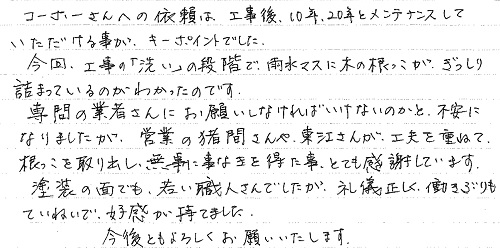 コーホーさんへの依頼は、工事後、10年、20年とメンテナンスして
いただける事が、キーポイントでした。
今回、工事の「洗い」の段階で、雨水マスに木の根っこが、ぎっしり
詰まっているのがわかったのです。
専門の業者さんにお願いしなければいけないのかと、不安に
なりましたが、営業の猪間さんや、東江さんが、工夫を重ねて、
根っこを取り出し、無事に事なきを得た事、とても感謝しています。
塗装の面でも、若い職人さんでしたが、礼儀正しく、働きぶりも
ていねいで、好感が持てました。
今後ともよろしくお願いいたします。